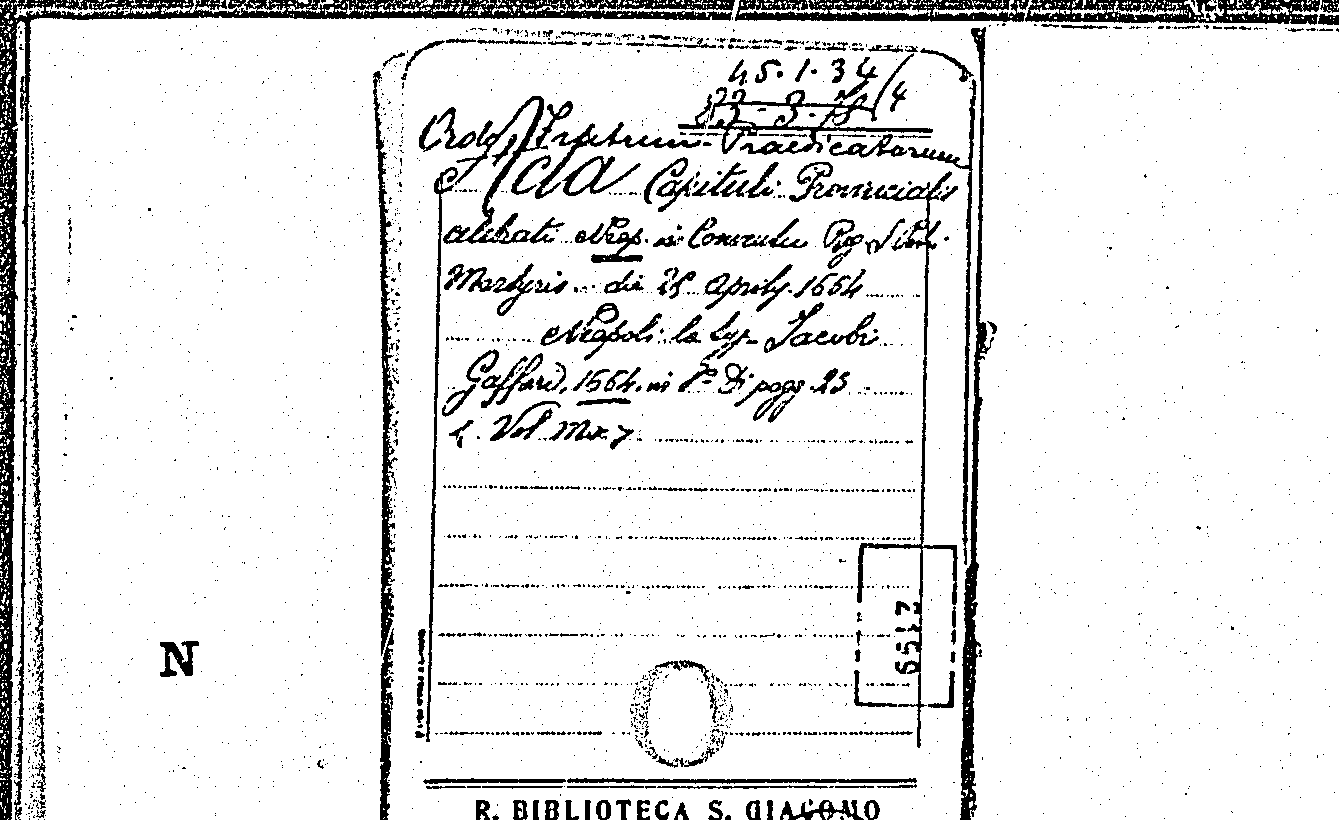 45.1.34/4
Ordo Fratrum Praedicatorum
Acta Capituli Provincialis
celebrati Neap. in Conventu Reg. S. Petri
Martyris die 25 Aprilis 1664
Neapoli ex typ. Jacobi
Gaffari, 1664. in 8º Di pagg. 23
f. Vol. Mix. 7
N
21599
R. BIBLIOTECA S. GIACOMO